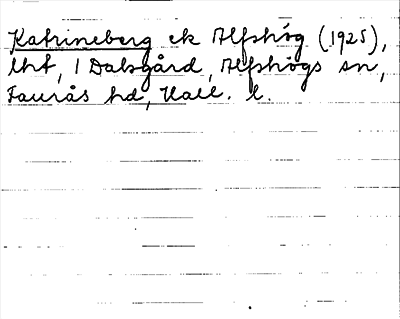 Katrineberg ek Alfshög (1925),
lht, 1 Dalsgård, Alfshögs sn,
Faurås hd, Hall. l.